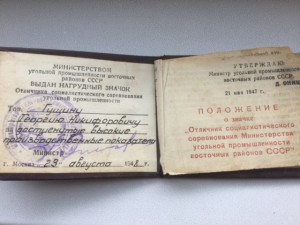 МИНИСТЕРСТВОМ
угольной промышленности восточных
районов СССР
ВЫДАН НАГРУДНЫЙ ЗНАЧОК
Отличника социалистического соревнования
угольной промышленности
Тов. Гущину
Георгию Никифоровичу
за достигнутые высокие
производственные показатели
Министр
г. Москва 23 августа 194
УТВЕРЖДАЮ
Министр угольной промышленности
восточных районов СССР
Д.
21 мая 1947 г.
ПОЛОЖЕНИЕ
о значке
"Отличник социалистического
соревнования Министерства
угольной промышленности
восточных районов СССР"